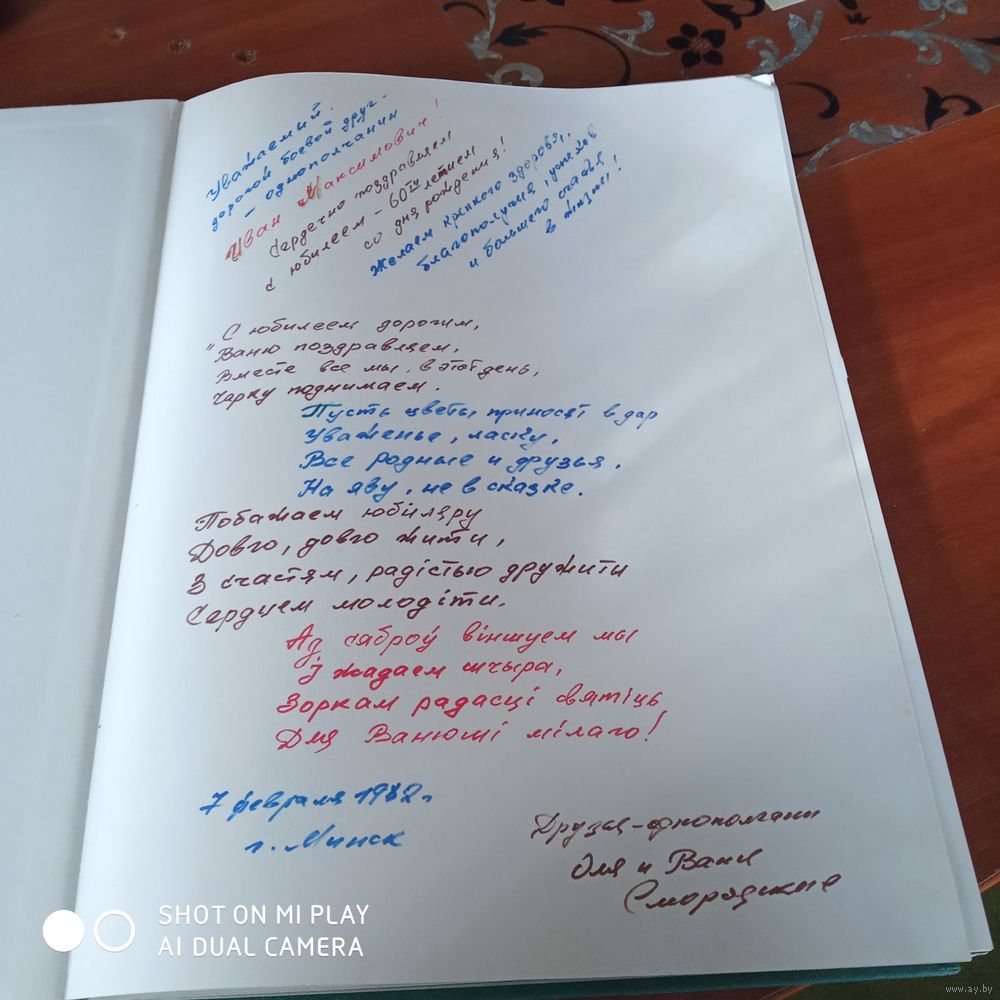 Уважаемий.
дорогой боевой друг -
- однополчанин
Иван Максимович!
Сердечно поздравляем
с юбилеем - 60ти летием
со дня рождения!
Желаем крепкого здоровья,
благополучия, успехов
и большого счастья
в жизни!
С юбилеем дорогим,
"Ваню поздравляем,
Вместе все мы, в этот день,
Чарку поднимаем.
Пусть цветы, приносят в дар
Уваженье, ласку,
Все родные и друзья,
На яву, не в сказке.
Побажаем юбіляру
Довго, довго жити,
З счастям, радістью дружити
Сердцем молодіти.
Ад сяброў віншуем мы
Ў жадаем шчыра,
Зоркам радасці святіць
Для Ванюші мілаго!
7 февраля 1982 г.
г. Минск
Друзья-однополчани
Оля и Ваня
Смородские
SHOT ON MI PLAY
AI DUAL CAMERA
www.ay.by